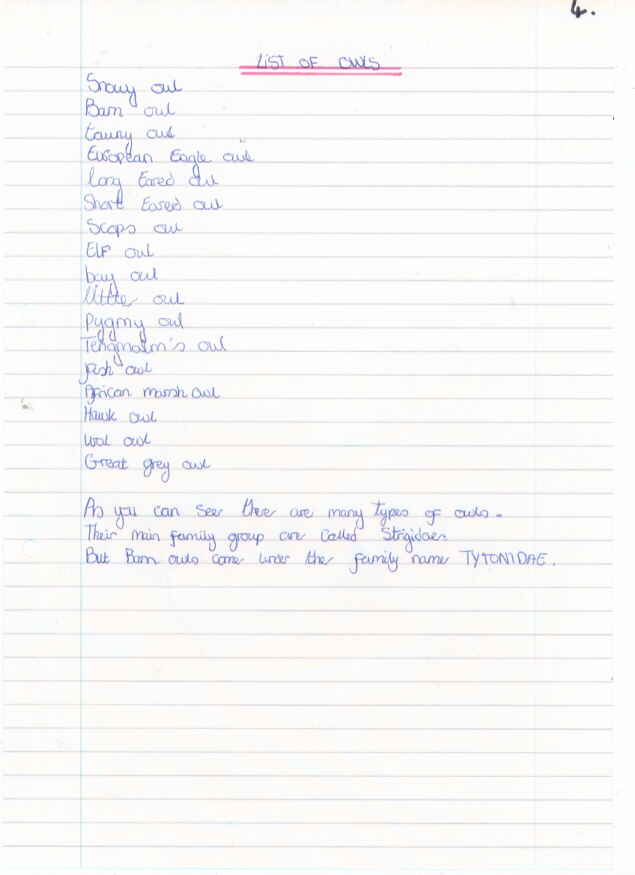 4.
LIST OF OWLS
Snowy owl
Barn owl
tawny owl
European Eagle owl
long Eared owl
Short Eared owl
Scops owl
Elf owl
bay owl
little owl
Pygmy owl
Tengmalm's owl
fish owl
African marsh owl
Hawk owl
owl
Great grey owl
As you can see there are many types of owls.
Their main family group are called Strigidae.
But Barn owls come under the family name TYTONIDAE.